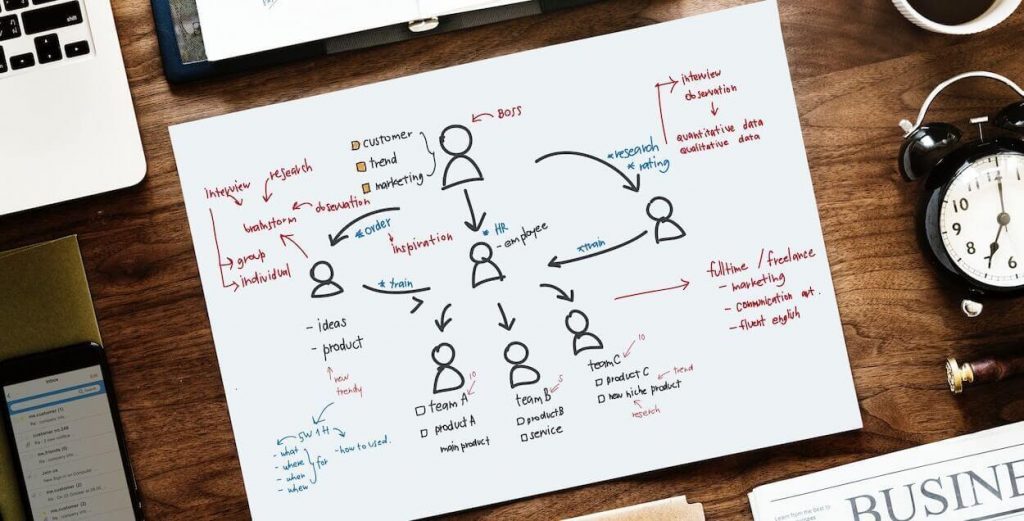 BOSS
customer
trend
marketing
interview
observation
quantitative data
qualitative data
*research
*rating
interview
research
brainstorm
observation
group
individual
*order
inspiration
* HR
- employee
*train
*train
- ideas
- product
new
trendy
5W1H
- what
- where
- when
for
- how to used.
fulltime / freelance
- marketing
- communication
- fluent english
10
team A
product A
main product
5
team B
product B
service
10
team C
product C
new niche product
trend
research
Inbox
Search
BUSINE
12
11
10
9
8
7
6
5